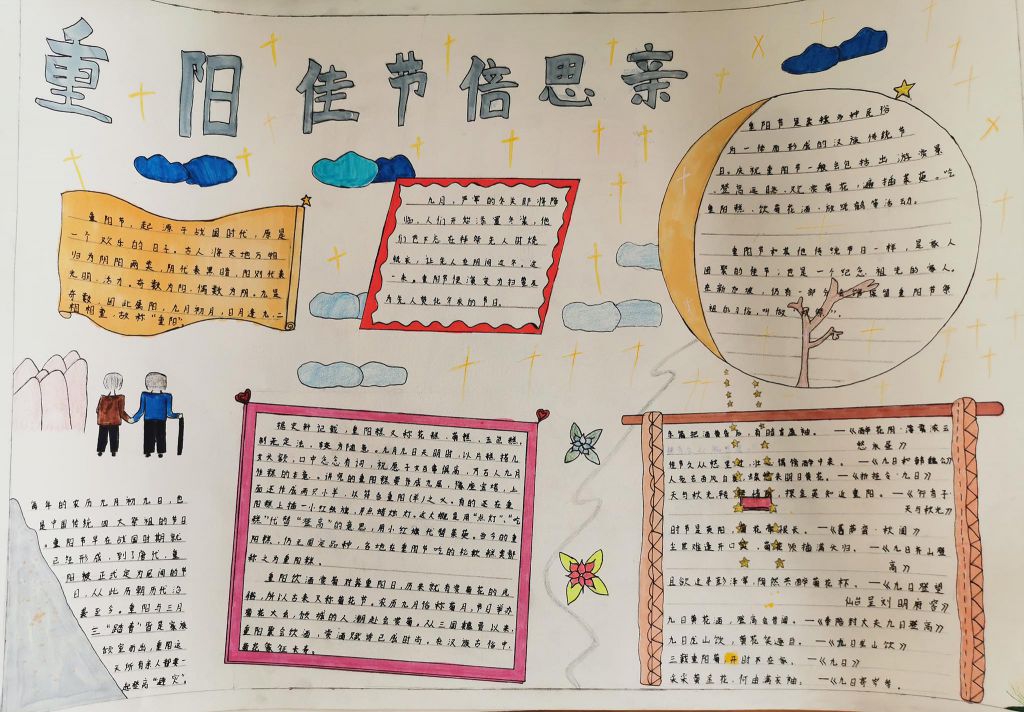 重阳佳节倍思亲
重阳节,起源于战国时代,原是
一个欢乐的日子。古人将天地万物
归为阴阳两类,阴代表黑暗,阳则代表
光明、活力。奇数为阳,偶数为阴。九是
奇数,因此属阳,九月初九,日月逢九,二
阳相重,故称“重阳”。
九月,严寒的冬天即将降
临,人们开始添置冬装,他
们也不忘在拜祭先人时烧
纸衣,让先人在阴间过冬。这
一来,重阳节便演变为扫墓及
为先人焚化冬衣的节日。
重阳节是杂糅多种民俗
为一体而形成的汉族传统节
日。庆祝重阳节一般会包括出游赏景
、登高远眺、观赏菊花、遍插茱萸、吃
重阳糕、饮菊花酒、放纸鹤等活动。
重阳节和其他传统节日一样,是家人
团聚的佳节;也是一个纪念祖先的家人。
在新加坡,仍有一部分会
保留重阳节祭
祖的习俗,叫做
每年的农历九月初九日,也
是中国传统四大祭祖的节日
。重阳节早在战国时期就
已经形成,到了唐代,重
阳被正式定为民间的节
日,从此历朝历代沿
袭至今。重阳与三月
三“踏春”皆是家族
倾室而出,重阳这
天所有亲人都要一
起登高“避灾”。
据史料记载,重阳糕又称花糕、菊糕、五色糕,
制无定法,较为随意。九月九日天明时,以片糕搭儿
女头额,口中念念有词,祝愿子女百事俱高,乃古人九月
作糕的本意。讲究的重阳糕要作成九层,像座宝塔,上
面还作成两只小羊,以符合重阳(羊)之义。有的还在重
阳糕上插一小红纸旗,并点蜡烛灯。这大概是用“点灯”、“吃
糕”代替“登高”的意思,用小红纸旗代替茱萸。当今的重
阳糕,仍无固定品种,各地在重阳节吃的松软糕类都
称之为重阳糕。
重阳饮酒赏菊对芳重阳日,历来就有赏菊花的风
俗,所以古来又称菊花节。农历九月俗称菊月,节日举办
菊花大会,倾城的人潮赴会赏菊。从三国魏晋以来,
重阳聚会饮酒、赏菊赋诗已成时尚。在汉族古俗中,
菊花象征长寿。
东篱把酒黄昏后,有暗香盈袖。——《醉花阴·薄雾浓云
愁永昼》
——《九日和韩魏公》
——《折桂令·九日》
天与秋光,转
探金英知近重阳。——《行香子·
天与秋光》
时节是重阳,菊花
长。——《菩萨蛮·秋闺》
尘世难逢开口
菊
须插满头归。——《九日齐山登
高》
且欲近寻彭泽宰,陶然共醉菊花杯。——《九日登望
仙台呈刘明府容》
九日黄花酒,登高会昔闻。——《奉陪封大夫九日登高》
九日龙山饮,黄花笑逐臣。——《九日龙山饮》
三载重阳菊,开时不在家。——《九日》
采采黄金花,何由满衣袖。——《九日寄岑参》